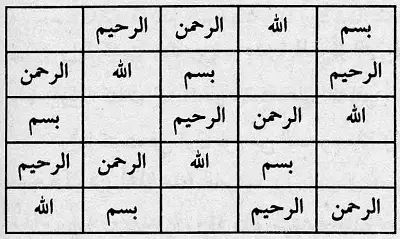 بسم الله الرحمن الرحيم
الرحيم بسم الله الرحمن
الله الرحمن الرحيم بسم
بسم الله الرحمن الرحيم
الرحمن الرحيم بسم الله